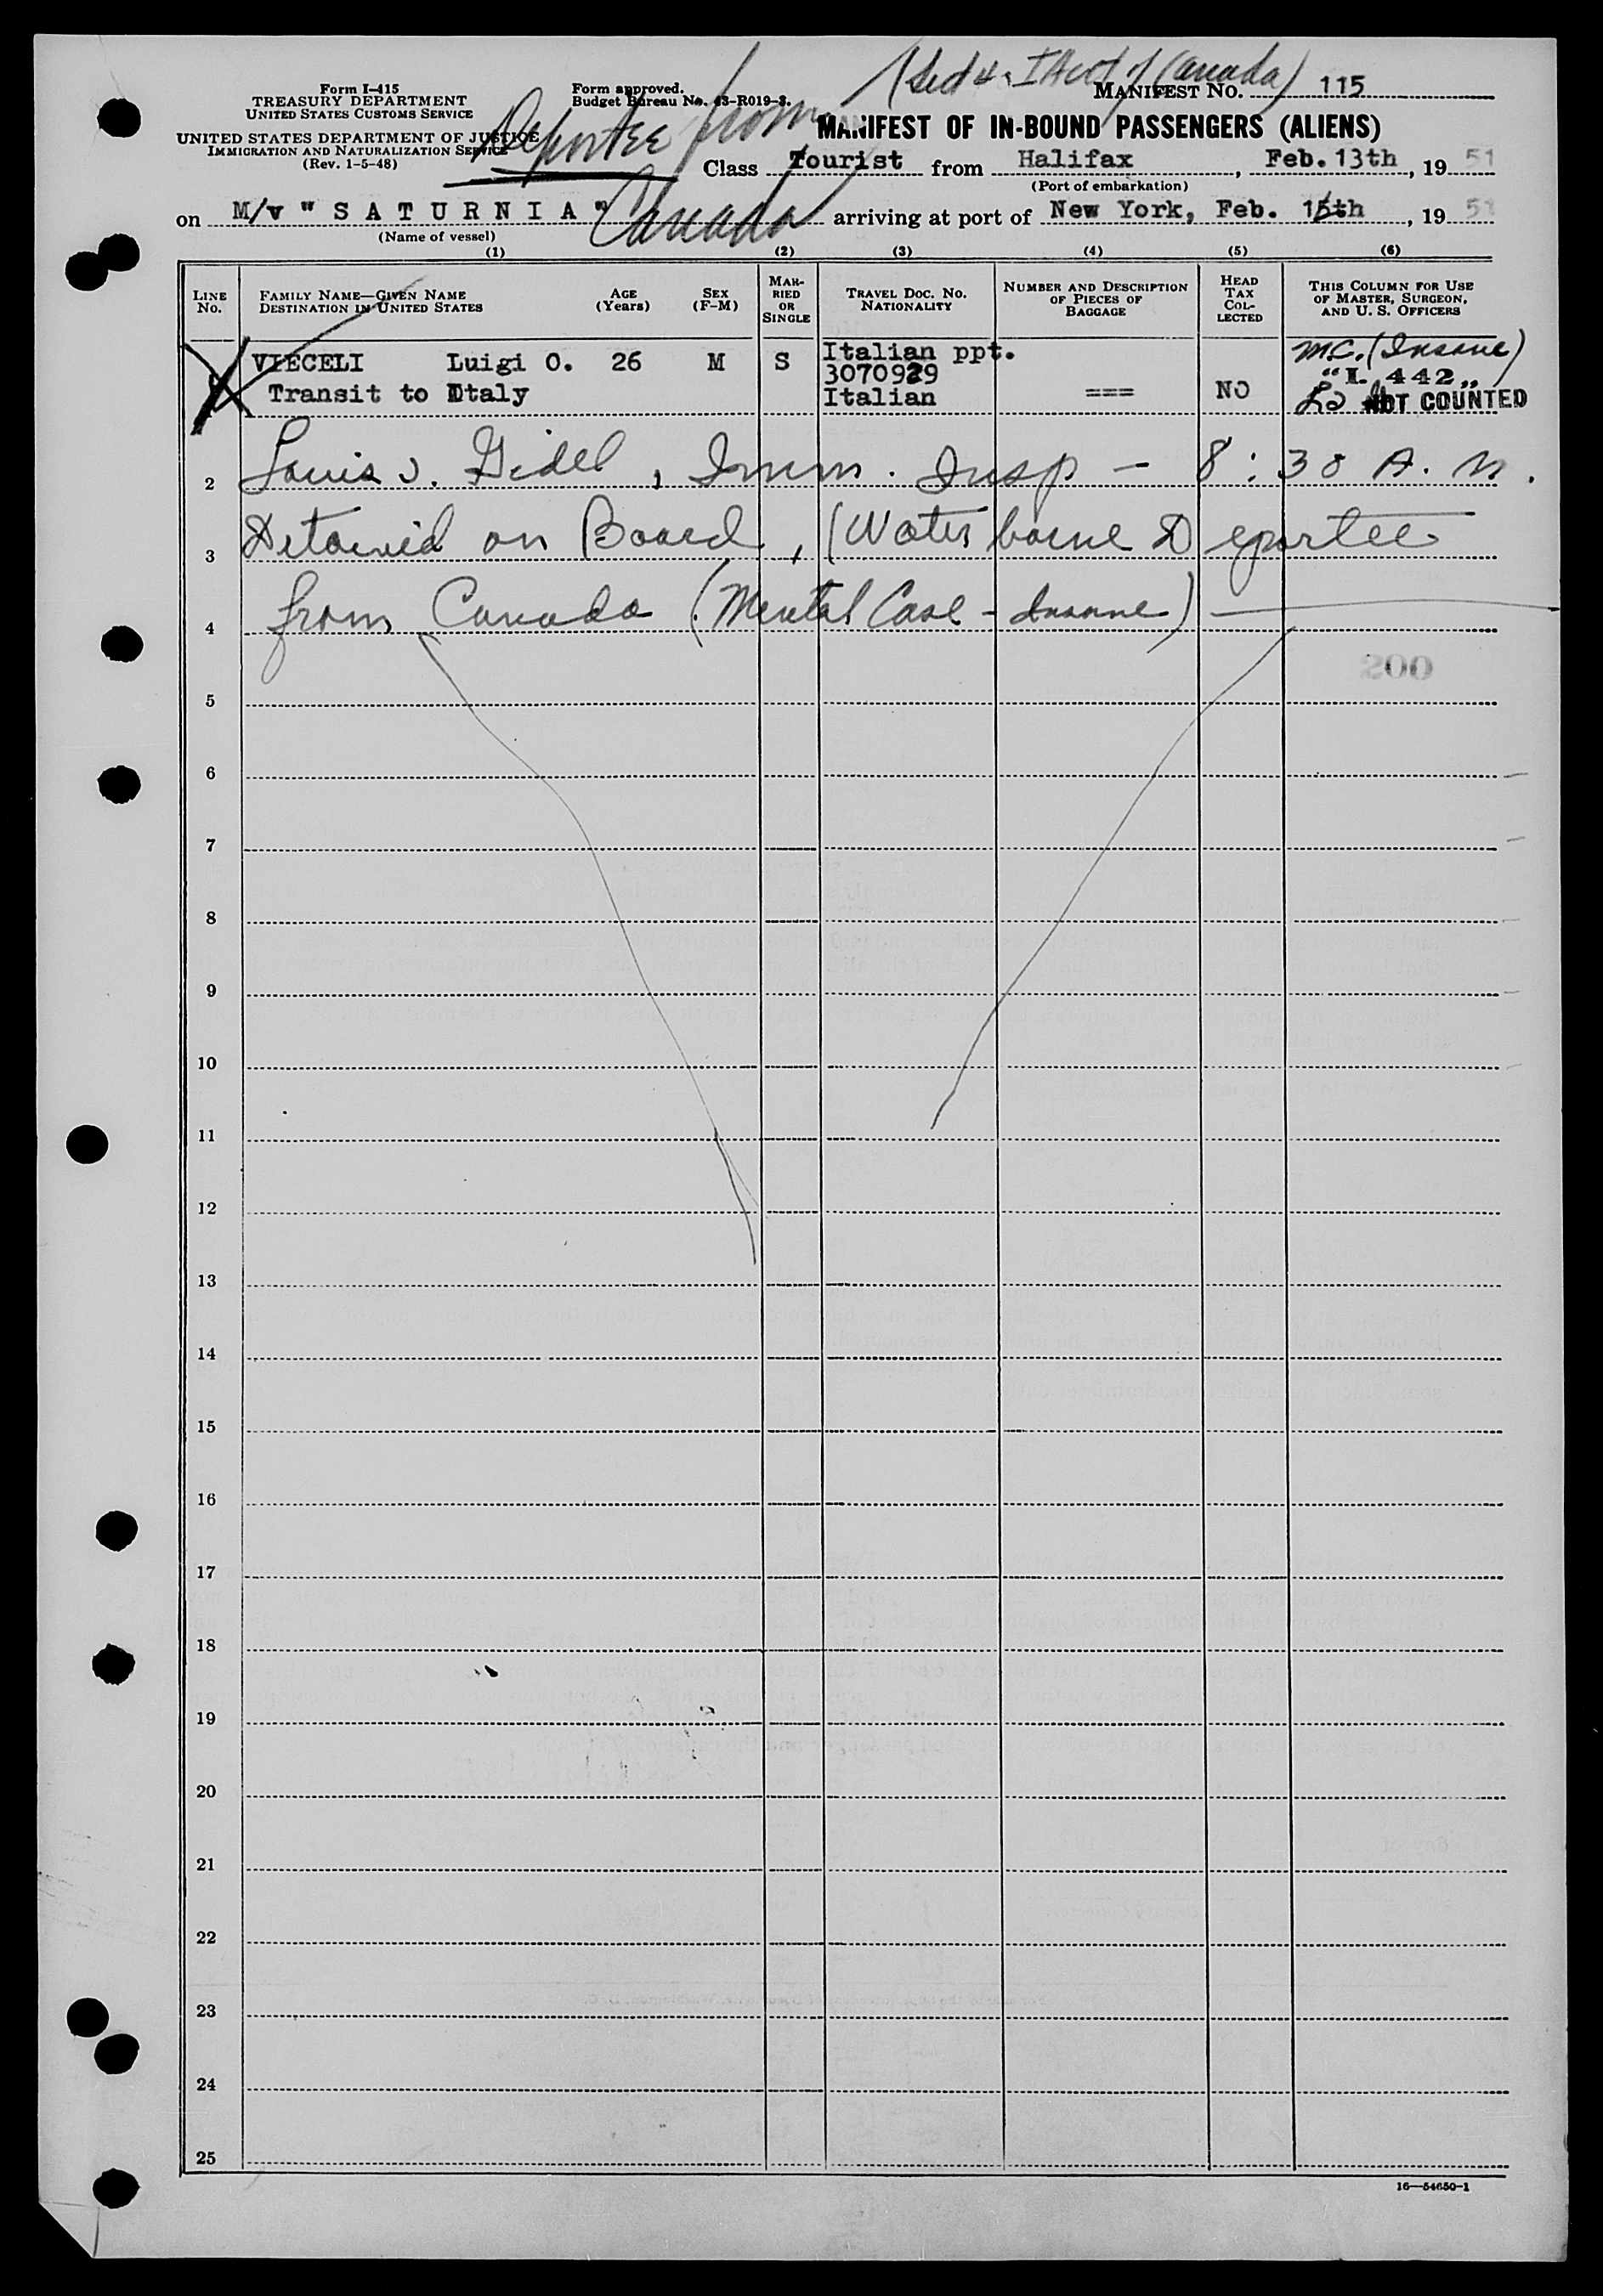 (Sec 4, I Act of Canada)
Form I-415
TREASURY DEPARTMENT
UNITED STATES CUSTOMS SERVICE
UNITED STATES DEPARTMENT OF JUSTICE
IMMIGRATION AND NATURALIZATION SERVICE
(Rev. 1-5-48)
Form approved.
Budget Bureau No. 43-R019-3.
Deportee from
Canada
MANIFEST NO. 115
MANIFEST OF IN-BOUND PASSENGERS (ALIENS)
Class Tourist from Halifax, Feb. 13th, 1951
(Port of embarkation)
on M/v "SATURNIA" arriving at port of New York, Feb. 15th, 1951
(Name of vessel)
(1) (2) (3) (4) (5) (6)
LINE NO.
FAMILY NAME—GIVEN NAME
DESTINATION IN UNITED STATES
AGE (Years)
SEX (F-M)
MARRIED OR SINGLE
TRAVEL DOC. NO.
NATIONALITY
NUMBER AND DESCRIPTION OF PIECES OF BAGGAGE
HEAD TAX COLLECTED
THIS COLUMN FOR USE OF MASTER, SURGEON, AND U. S. OFFICERS
VIECELI Luigi O. 26 M S Italian ppt. M.C. (Insane)
3070929 "I. 442"
Transit to Italy Italian === NO NOT COUNTED
2 Louis J. Gidel, Imm. Insp — 8:30 A.M.
3 Detained on Board, (Water borne Deportee
4 from Canada (Mental Case - Insane)
200
5
6
7
8
9
10
11
12
13
14
15
16
17
18
19
20
21
22
23
24
25
16—54650-1